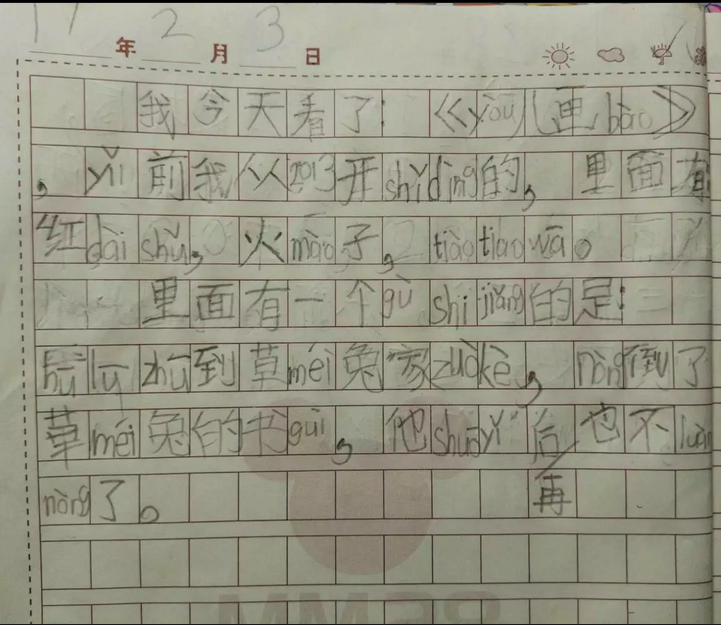 17年2月3日
我今天看了：《yòu儿画bào》
，yǐ前我从2013开shǐdìng的，里面有
红dài shǔ，火mào子，tiào tiao wā。
里面有一个gù shi jiǎng的是：
hū lū zhū到草méi兔家zuòkè，nòng倒了
草méi兔的书guì，他shuōyǐ后再也不luàn
nòng了。